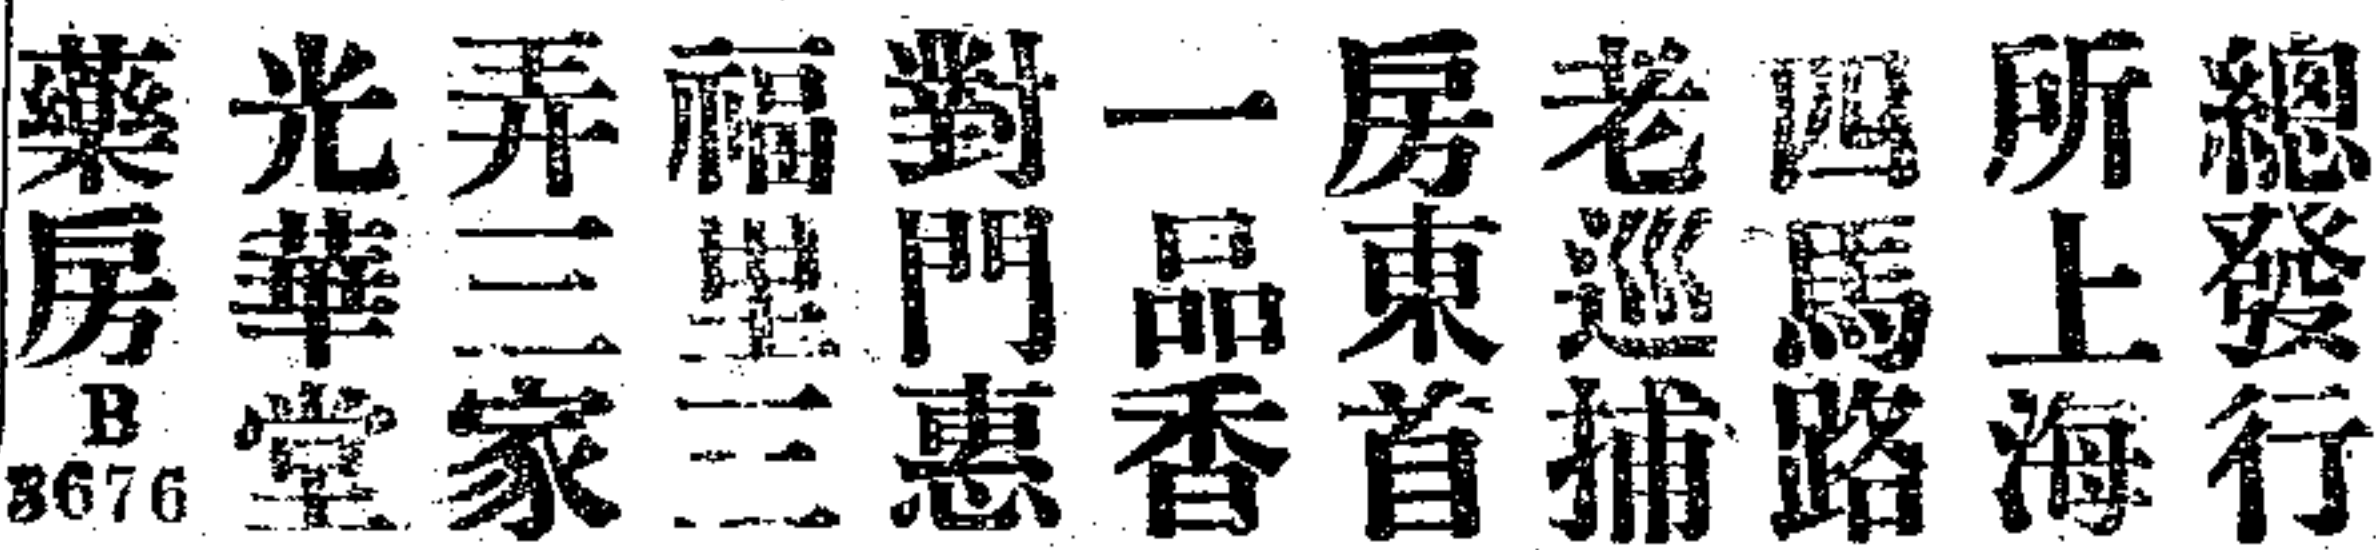 總發行
所上海
四馬路
老巡捕
房東首
一品香
對門惠
福里三
弄三家
光華堂
藥房
B
3676